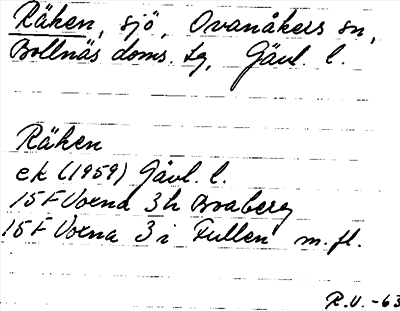 Räken, sjö, Ovanåkers sn,
Bollnäs doms. tg, Gävl. l.
Räken
ek (1959) Gävl. l.
15F Voxna 3h Boaberg
15F Voxna 3i Fullen m.fl.
R.V. -63